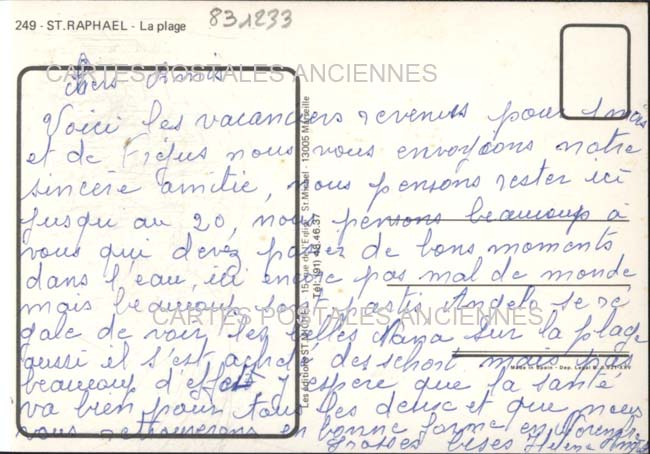 249 - ST. RAPHAEL - La plage
831233
CARTES POSTALES ANCIENNES
Chers Amis
Voici les vacanciers revenus pour 1 mois
et de Fréjus nous vous envoyons notre
sincère amitié, nous pensons rester ici
jusqu au 20, nous pensons beaucoup à
vous qui devez passer de bons moments
dans l'eau, ici encore pas mal de monde
mais beaucoup sont partis Angelo se ré
gale de voir les belles Nana sur la plage
aussi il s'est acheté des short mais pas
beaucoup d'effet J espère que la santé
va bien pour tous les deux et que nous
nous retrouverons en bonne forme en Novembre
Grosses bises Hélène
CARTES POSTALES ANCIENNES
Les éditions ST-MICHEL - 15, rue de l'Eglise - St Michel - 13005 Marseille
Tél. (91) 48.46.37
Made in Spain - Dep. Legal B.